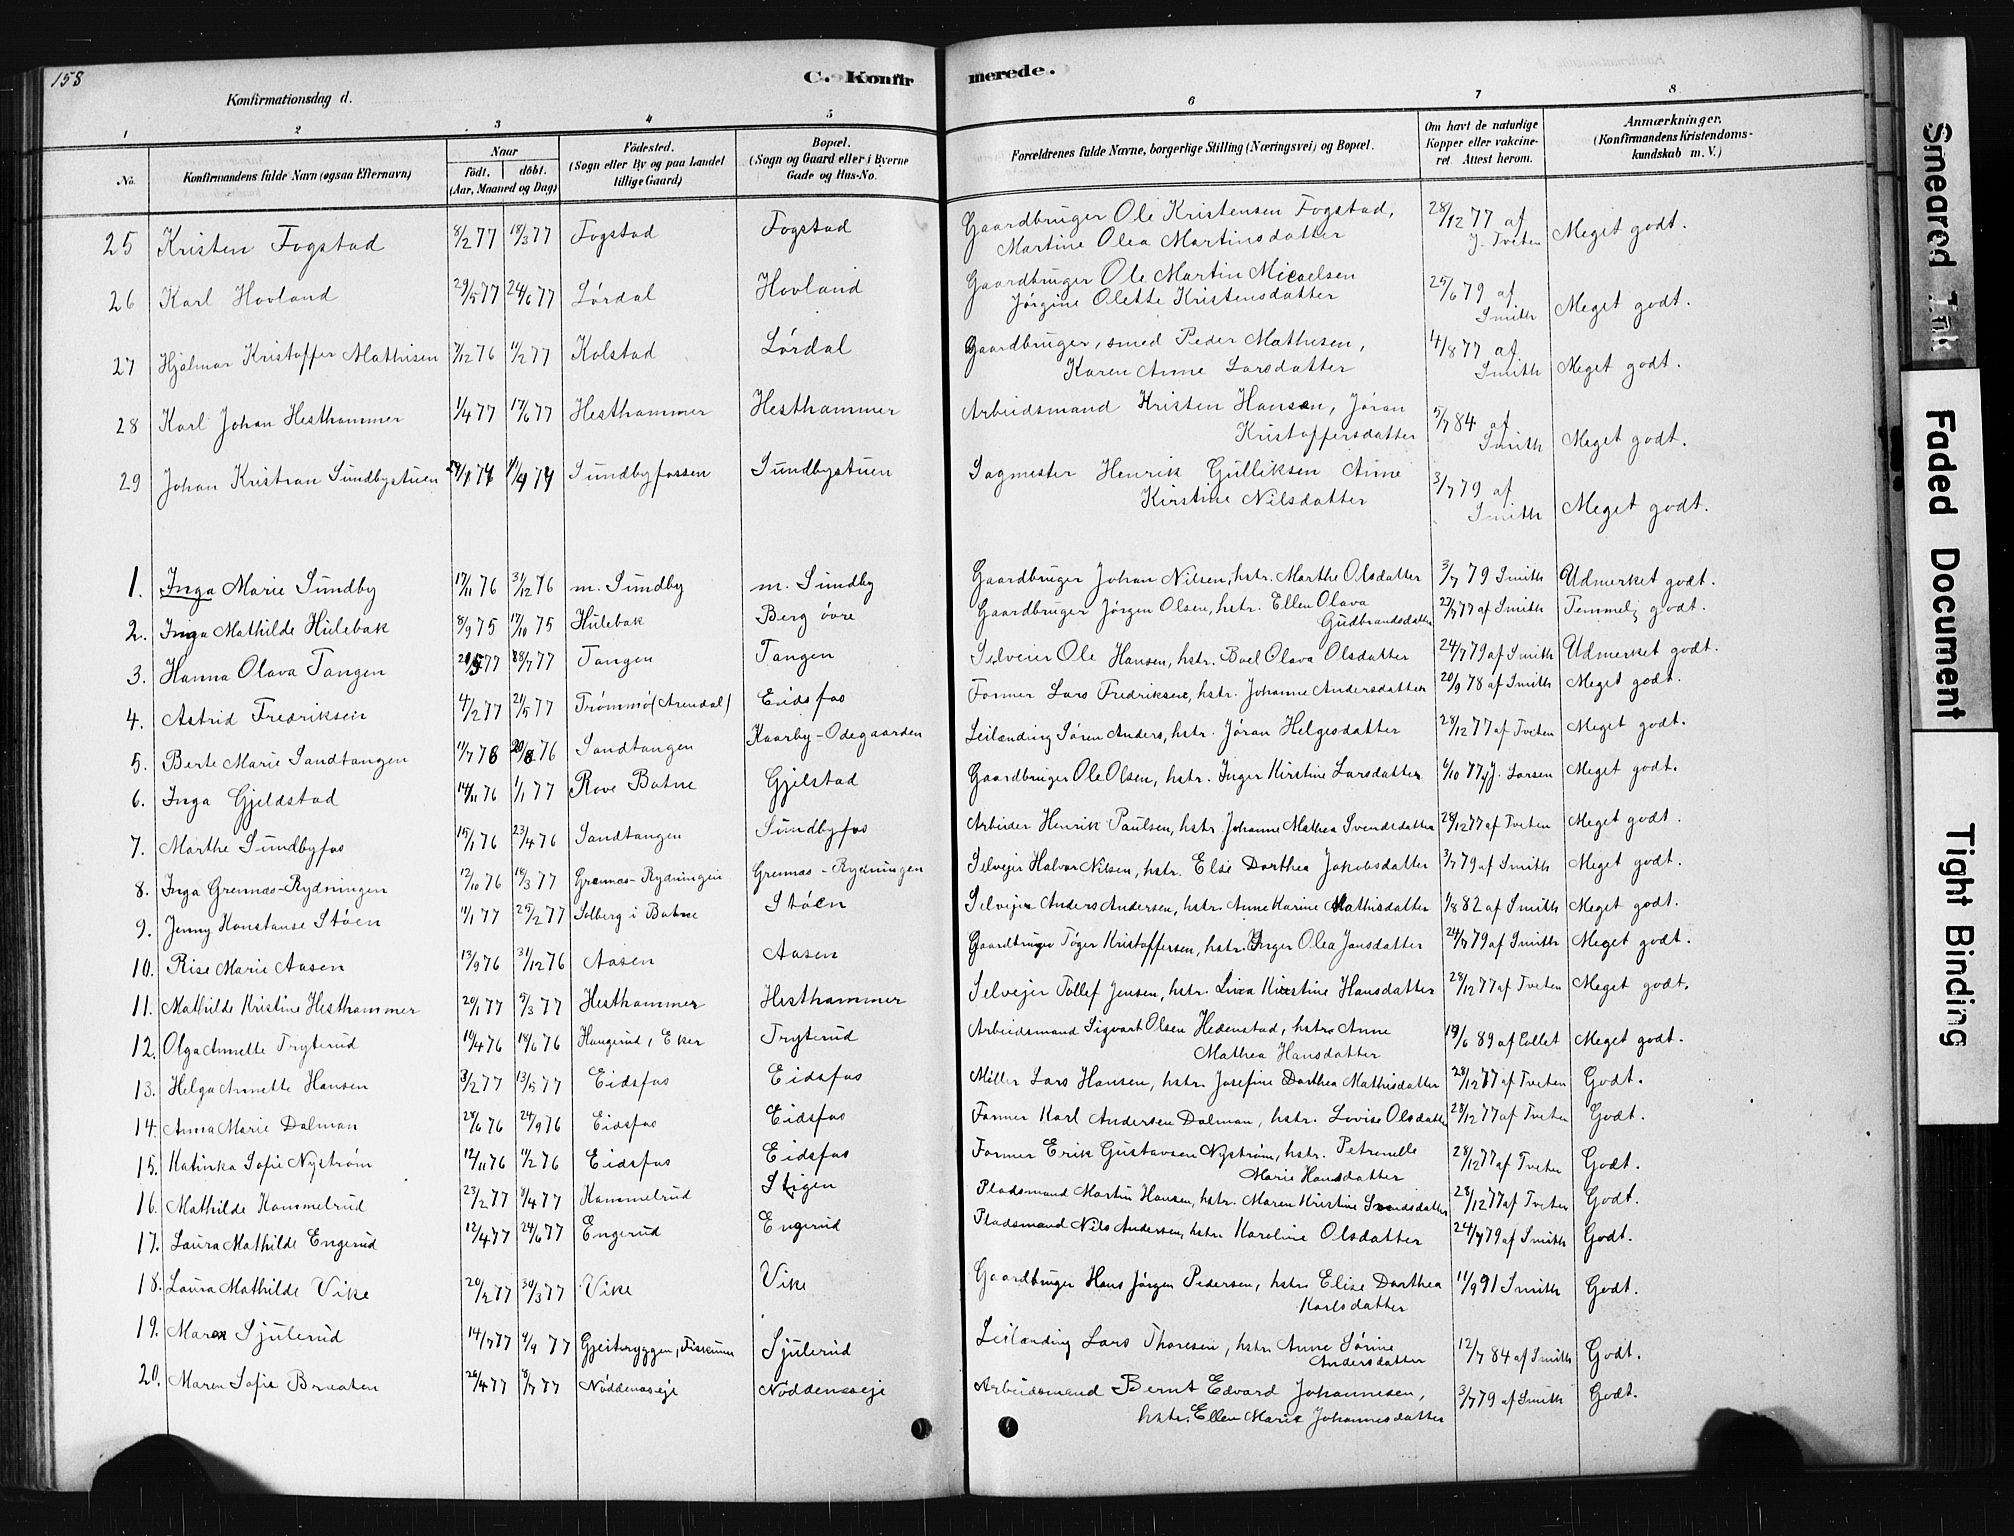 158
C. Konfir merede.
Konfirmationsdag d.
1 2 3 4 5 6 7 8
No. Konfirmandens fulde Navn (ogsaa Efternavn) Naar Født. døbt. (Aar, Maaned og Dag) Fødested. (Sogn eller By og paa Landet tillige Gaard) Bopæl. (Sogn og Gaard eller i Byerne Gade og Hus-No. Forældrenes fulde Navne, borgerlige Stilling (Næringsvei) og Bopæl. Om havt de naturlige Kopper eller vakcineret. Attest herom. Anmærkninger. (Konfirmandens Kristendomskundskab m. V.)
25 Kristen Fogstad 8/2 77 18/3 77 Fogstad Fogstad Gaardbruger Ole Kristensen Fogstad, Martine Olea Martinsdatter 28/12 77 af J. Tveten Meget godt.
26 Karl Hovland 29/5 77 24/6 77 Lørdal Hovland Gaardbruger Ole Martin Micaelsen Jørgine Olette Kristensdatter 25/6 79 af Smith Meget godt.
27 Hjalmar Kristoffer Mathisen 7/12 76 11/2 77 Kolstad Lørdal Gaardbruger, smed Peder Mathisen, Karen Anne Larsdatter 4/8 77 af Smith Meget godt.
28 Karl Johan Hesthammer 1/4 77 17/6 77 Hesthammer Hesthammer Arbeidsmand Kristen Hansen, Jøran Kristoffersdatter 5/7 84 af Smith Meget godt.
29 Johan Kristian Sundbystuen 74 74 Sundbyfossen Sundbystuen Sagmester Henrik Gulliksen Anne Kirstine Nilsdatter 3/7 79 af Smith Meget godt.
1. Inga Marie Sundby 17/11 76 31/12 76 m. Sundby m. Sundby Gaardbruger Johan Nilsen, hstr. Marthe Olsdatter 3/7 79 Smith Udmerket godt.
2. Inga Mathilde Hulebak 8/9 75 17/10 75 Hulebak Berg övre Gaardbruger Jørgen Olsen, hstr. Ellen Olava Gudbrandsdatter 23/7 77 af Smith Temmel; godt.
3. Hanna Olava Tangen 77 77 Tangen Tangen Selveier Ole Hansen, hstr. Boel Olava Olsdatter 24/7 79 af Smith Udmerket godt.
4. Astrid Fredriksen 4/2 77 21/5 77 Trømmø (Arendal) Eidsfos Former Lars Fredriksen, hstr. Johanne Andersdatter 20/9 78 af Smith Meget godt.
5. Berte Marie Sandtangen 11/7 76 20/8 76 Sandtangen Kaarby-Odegaarden Leilænding Søren Anders, hstr. Jøran Helgesdatter 28/12 77 af Tveten Meget godt.
6. Inga Gjeldstad 14/11 76 1/1 77 Rove Botne Gjelstad Gaardbruger Ole Olsen, hstr. Inger Kirstine Larsdatter 6/10 77 af J. Larsen Meget godt.
7. Marthe Sundbyfos 15/1 76 23/4 76 Sandtangen Sundbyfos Arbeider Henrik Paulsen, hstr. Johanne Mathea Svendsdatter 28/12 77 af Tveten Meget godt.
8. Inga Grennæs-Rydningen 12/10 76 18/3 77 Grennæs-Rydningen Grennæs-Rydningen Selvejer Halvor Nilsen, hstr. Else Dorthea Jakobsdatter 3/7 79 af Smith Meget godt.
9. Jenny Konstanse Støen 11/1 77 25/2 77 Solberg i Botne Støen Selvejer Anders Andersen, hstr. Anne Karine Mathisdatter 1/8 82 af Smith Meget godt.
10. Rise Marie Aasen 13/9 76 31/12 76 Aasen Aasen Gaardbruger Tøger Kristoffersen, hstr. Inger Olea Jansdatter 24/7 79 af Smith Meget godt.
11. Mathilde Kristine Hesthammer 20/1 77 5/3 77 Hesthammer Hesthammer Selvejer Tollef Jensen, hstr. Lina Kirstine Hansdatter 28/12 77 af Tveten Meget godt.
12. Olga Annette Tryterud 10/4 76 18/6 76 Haugerud, Eker Tryterud Arbeidsmand Sigvart Olsen Hedenstad, hstr. Anne Mathea Hansdatter 19/6 89 af Collet Meget godt.
13. Helga Annette Hansen 3/2 77 13/5 77 Eidsfos Eidsfos Møller Lars Hansen, hstr. Josefine Dorthea Mathisdatter 28/12 77 af Tveten Godt.
14. Anna Marie Dalman 28/6 76 24/9 76 Eidsfos Eidsfos Former Karl Andersen Dalman, hstr. Lovise Olsdatter 28/12 77 af Tveten Godt.
15. Katinka Sofie Nystrøm 12/11 76 11/2 76 Eidsfos Eidsfos Former Erik Gustavsen Nystrøm, hstr. Petrenelle Marie Hansdatter 28/12 77 af Tveten Godt.
16. Mathilde Kammelrud 23/2 77 8/4 77 Kammelrud Stigen Pladsmand Martin Hansen, hstr. Maren Kristine Svendsdatter 28/12 77 af Tveten Godt.
17. Laura Mathilde Engerud 12/4 77 24/6 77 Engerud Engerud Pladsmand Nils Andersen, hstr. Karoline Olsdatter 24/7 79 af Smith Godt.
18. Laura Mathilde Vike 20/2 77 30/3 77 Vike Vike Gaardbruger Hans Jørgen Pedersen, hstr. Elise Dorthea Karlsdatter 11/9 91 Smith Godt.
19. Maren Sjulerud 14/7 77 9/9 77 Gjeiteryggen, Fiskum Sjulerud Leilænding Lars Thoresen, hstr. Anne Sørine Andersdatter 12/7 84 af Smith Godt.
20. Maren Sofie Braaten 26/4 77 8/7 77 Nøddenæseje Nøddenæseje Arbeidsmand Bernt Edvard Johannesen, hstr. Ellen Marie Johannesdatter 3/7 79 af Smith Godt.
Smeared Ink
Faded Document
Tight Binding